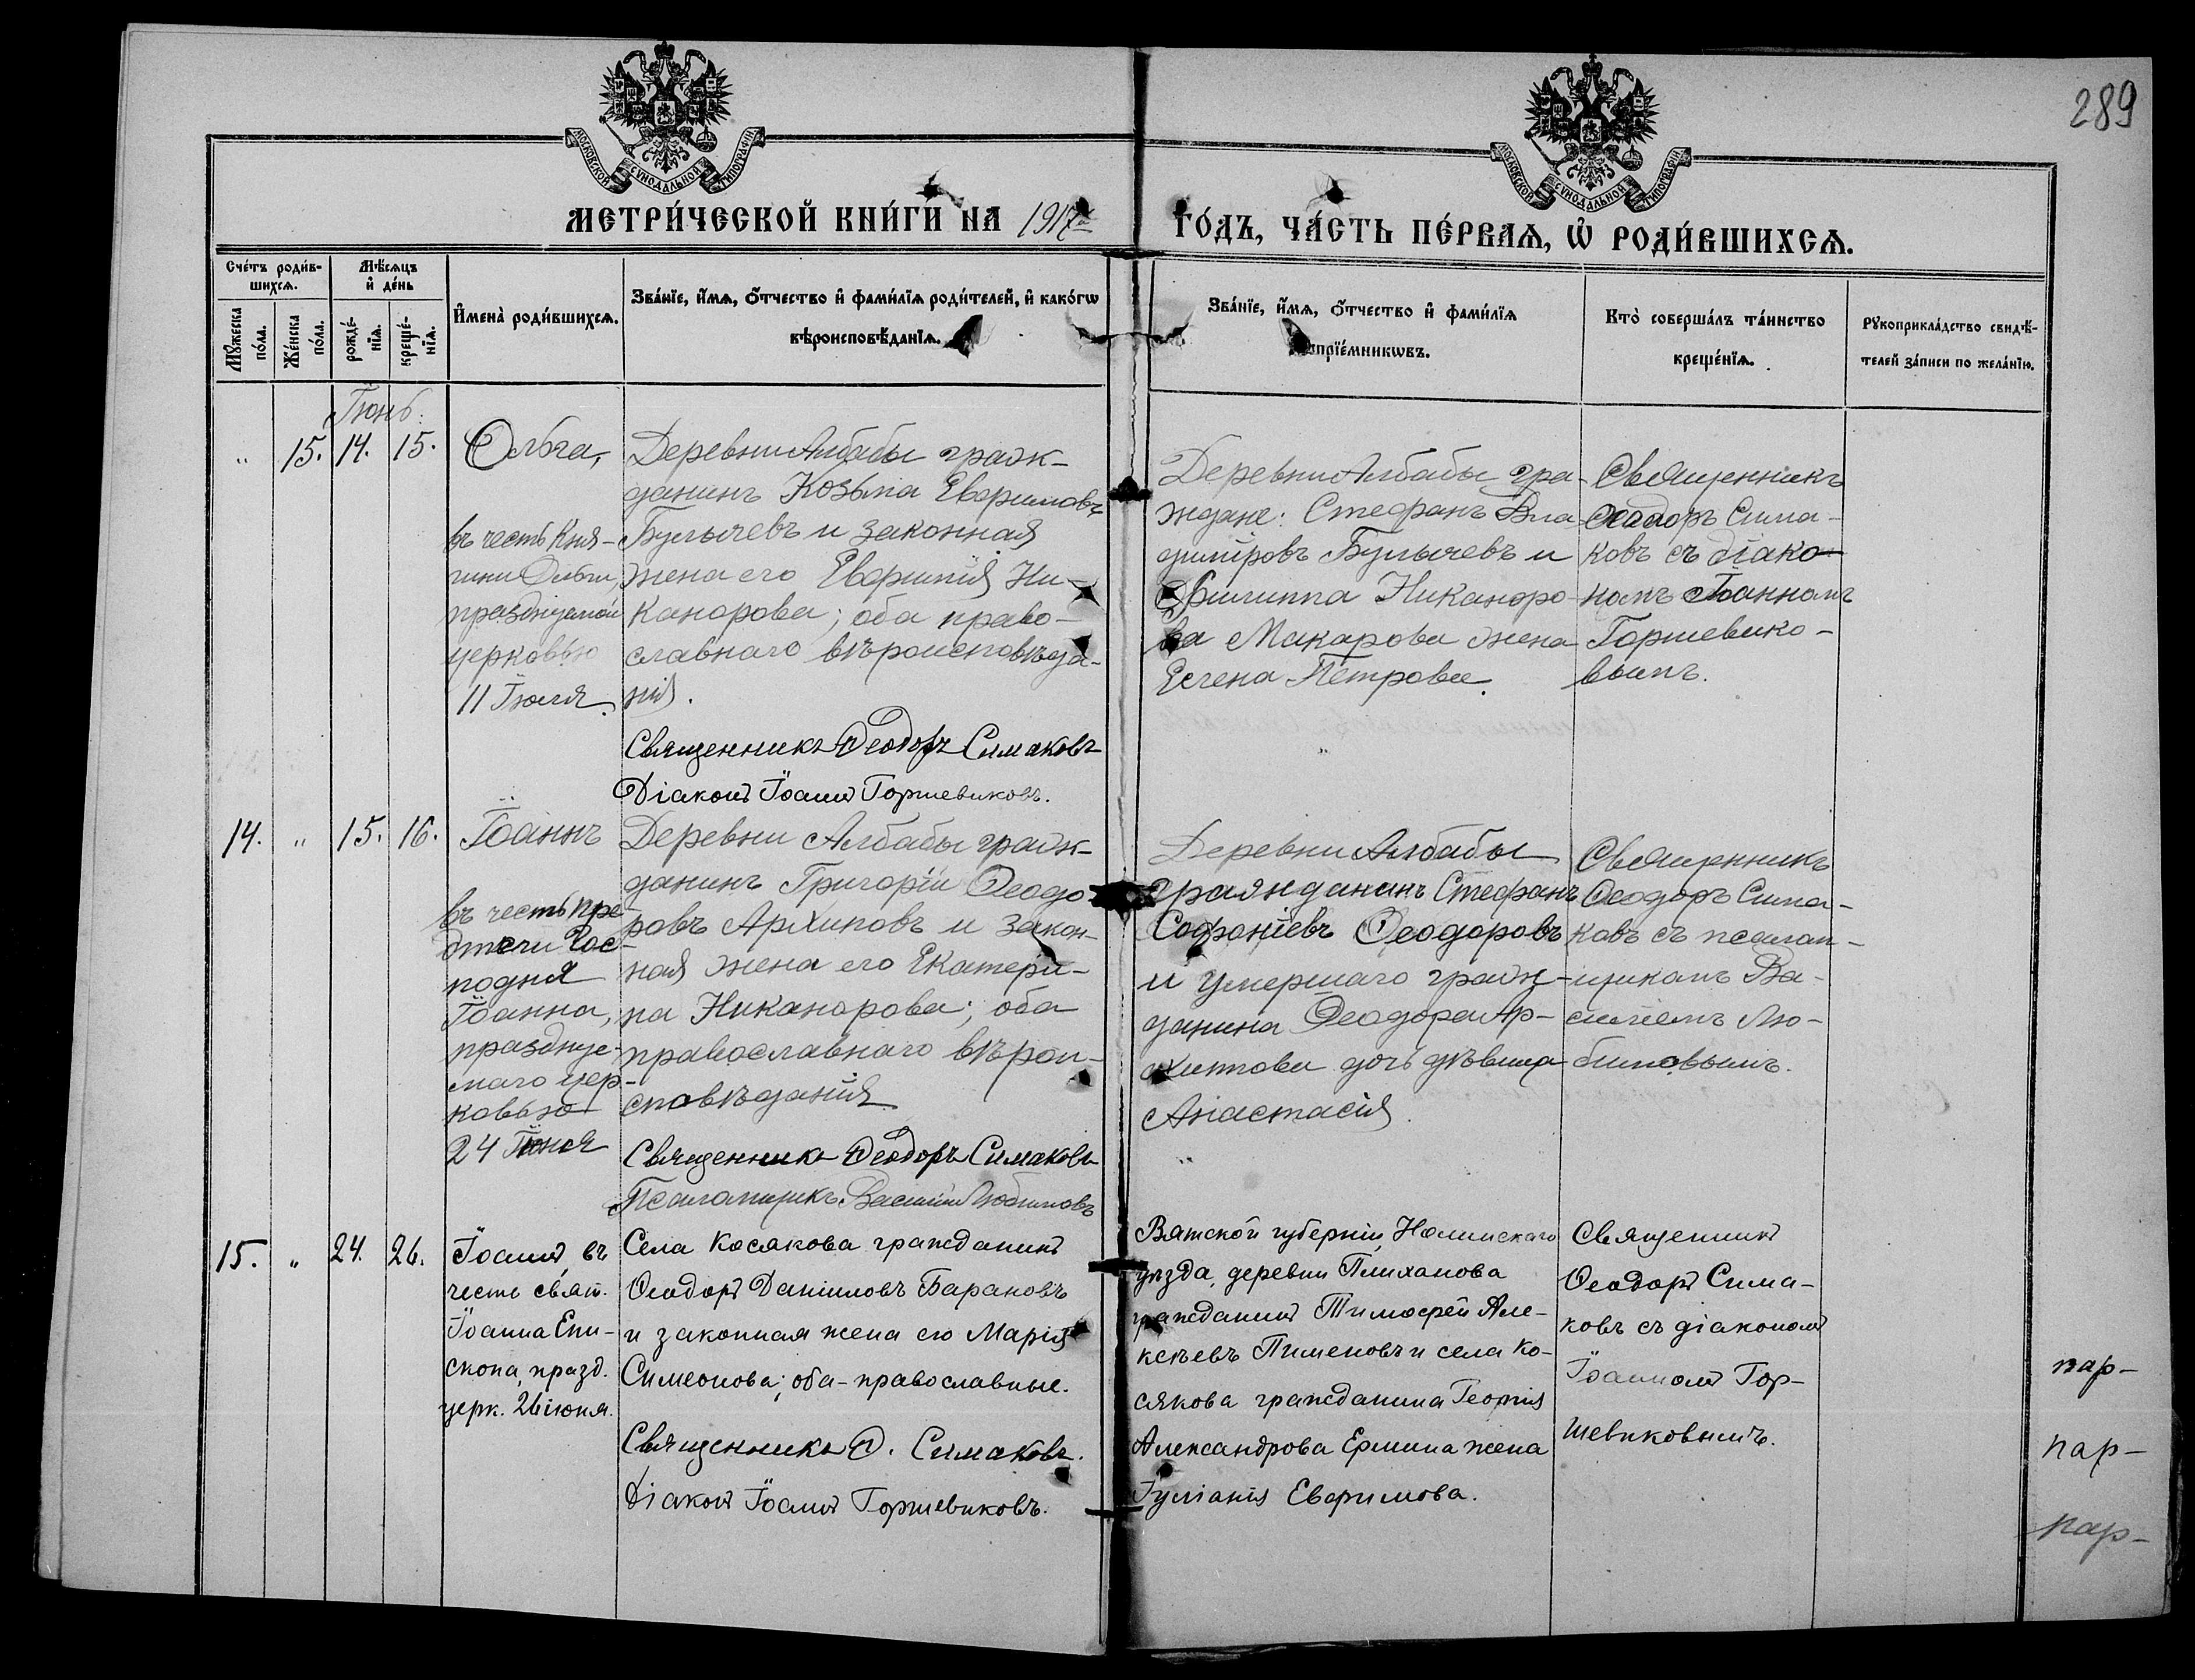 289
МОСКОВСКОЙ СѴНОДАЛЬНОЙ ТИПОГРАФІИ
МОСКОВСКОЙ СѴНОДАЛЬНОЙ ТИПОГРАФІИ
МЕТРИ́ЧЕСКОЙ КНИ́ГИ НА 1917й
ГО́ДЪ, ЧА́СТЬ ПЕ́РВАѦ, Ѡ҆ РОДИ́ВШИХСѦ.
Сче́тъ роди́в-
шихсѧ.
Мꙋ́жеска по́ла.
Же́нска по́ла.
Мѣ́сѧцъ
и҆ де́нь
рожде́-
нїѧ.
креще́-
нїѧ.
И҆мена̀ роди́вшихсѧ.
Зва́нїе, и҆́мѧ, ѻ҆́тчество и҆ фами́лїѧ роди́телей, и҆ како́гѡ
вѣроисповѣ́данїѧ.
Зва́нїе, и҆́мѧ, ѻ҆́тчество и҆ фами́лїѧ
прїе́мникѡвъ.
Кто̀ соверша́лъ та́инство
креще́нїѧ.
Рꙋкоприкла́дство свидѣ́-
телей за́писи по жела́нїю.
Іюнь.
„ 15. 14. 15.
Ольга,
въ честь Кня-
гини Ольги,
празднуемой
церковью
11 Іюля.
Деревни Албабы граж-
данинъ Козьма Евфимовъ
Булычевъ и законная
жена его Евфимія Ни-
канорова; оба право-
славнаго вѣроисповѣда-
нія.
Священникъ Ѳеодоръ Симаковъ
Діаконъ Іоаннъ Горшевиковъ.
Деревни Албабы гра-
ждане: Стефанъ Вла-
диміровъ Булычевъ и
Филиппа Никаноро-
ва Макарова жена
Елена Петрова.
Священникъ
Ѳеодоръ Сима-
ковъ съ діако-
номъ Іоанномъ
Горшевико-
вымъ.
14. „ 15. 16.
Іоаннъ
въ честь Пре-
дтечи Гос-
подня
Іоанна,
празднуе-
маго цер-
ковью
24 Іюня
Деревни Албабы граж-
данинъ Григорій Ѳеодо-
ровъ Архиповъ и закон-
ная жена его Екатери-
на Никанорова; оба
православнаго вѣрои-
сповѣданія
Священникъ Ѳеодоръ Симаковъ
Псаломщикъ Василій Любимовъ
Деревни Албабы
гражданинъ Стефанъ
Софоніевъ Ѳеодоровъ
и умершаго граж-
данина Ѳеодора Ар-
хипова дочь дѣвица
Анастасія.
Священникъ
Ѳеодоръ Сима-
ковъ съ псалом-
щикомъ Ва-
силіемъ Лю-
бимовымъ.
15. „ 24. 26.
Іоаннъ, въ
честь свят.
Іоанна Епи-
скопа, празд.
церк. 26 іюня.
Села Косякова гражданинъ
Ѳеодоръ Даниловъ Барановъ
и законная жена его Марія
Симеонова; оба - православные.
Священникъ Ѳ. Симаковъ.
Діаконъ Іоаннъ Горшевиковъ.
Вятской губерніи, Нолинскаго
уѣзда, деревни Плиханова
гражданинъ Тимофей Але-
ксѣевъ Пименовъ и села Ко-
сякова гражданина Георгія
Александрова Ермина жена
Іуліанія Евфимова.
Священникъ
Ѳеодоръ Сима-
ковъ съ діакономъ
Іоанномъ Гор-
шевиковымъ.
пар-
пар-
пар-